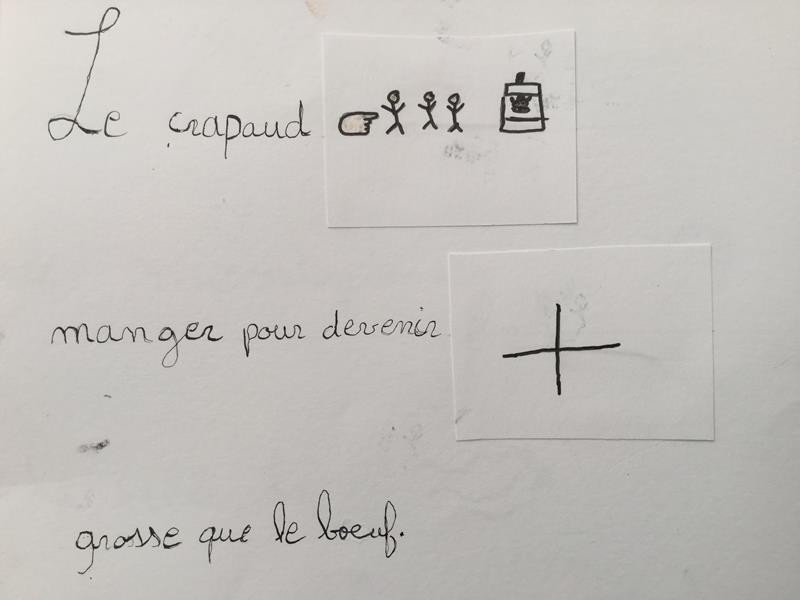 Le crapaud
manger pour devenir
grosse que le boeuf.